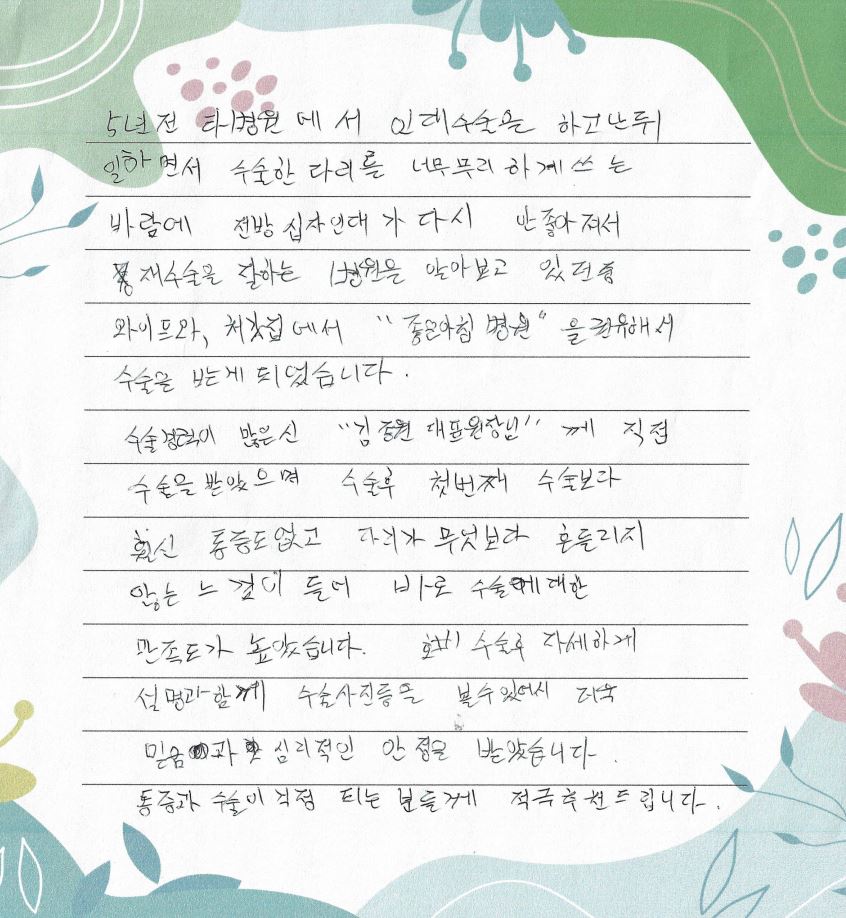 5년전 타병원에서 인대수술을 하고난뒤
일하면서 수술한 다리를 너무무리하게쓰는
바람에 전방십자인대가 다시 안좋아져서
재수술을 잘하는 병원을 알아보고 있던중
와이프와, 처갓집에서 "좋은아침병원"을 권유해서
수술을 받게 되었습니다.
수술경력이 많은신 "김 대표원장님" 께 직접
수술을 받았으며 수술후 첫번째 수술보다
훨신 통증도없고 다리가 무엇보다 흔들리지
않는 느낌이 들어 바로 수술에대한
만족도가 높았습니다. 수술후 자세하게
설명과함께 수술사진등을 볼수있어서 더욱
믿금과 심리적인 안정을 받았습니다.
통증과 수술이 걱정 되는 분들께 적극추천드립니다.